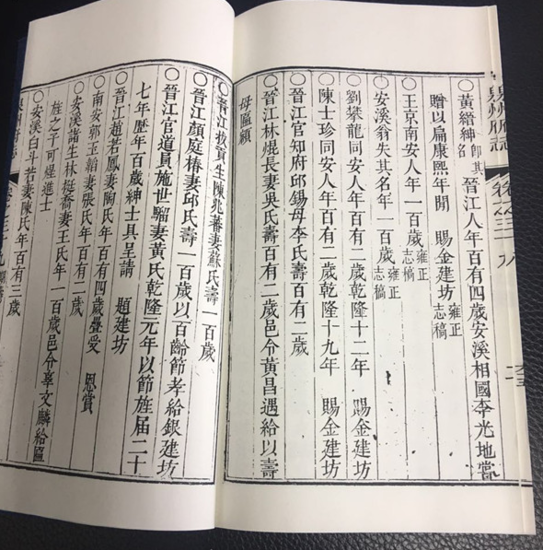 泉州府志
○黃縉紳即其名晉江人年百有四歲安溪相國李光地嘗
贈以扁康熙年間 賜金建坊雍正志稿
○王京南安人年一百歲雍正志稿
○安溪翁失其名年一百歲雍正志稿
○劉攀龍同安人年百有一歲乾隆十二年 賜金建坊
○陳士珍同安人年百有一歲乾隆十九年 賜金建坊
○晉江官知府邱錫母李氏壽百有二歲
○晉江林焜長妻吳氏壽百有二歲邑令黃昌遇給以壽
母匾額
○晉江拔貢生陳兆蕃妻蘇氏壽一百歲
○晉江顏庭椿妻邱氏壽一百歲以百齡節孝給銀建坊
○晉江官道員施世騮妻黃氏乾隆元年以節旌屆二十
七年歷年百歲紳士具呈請 題建坊
○晉江趙若鳳妻陶氏年百有四歲疊受 恩賞
○南安郭玉韜妻張氏年百有二歲
○安溪諸生林挺喬妻王氏年一百歲邑令章文麟給匾
旌之子可煜進士
○安溪白斗若妻陳氏年百有三歲